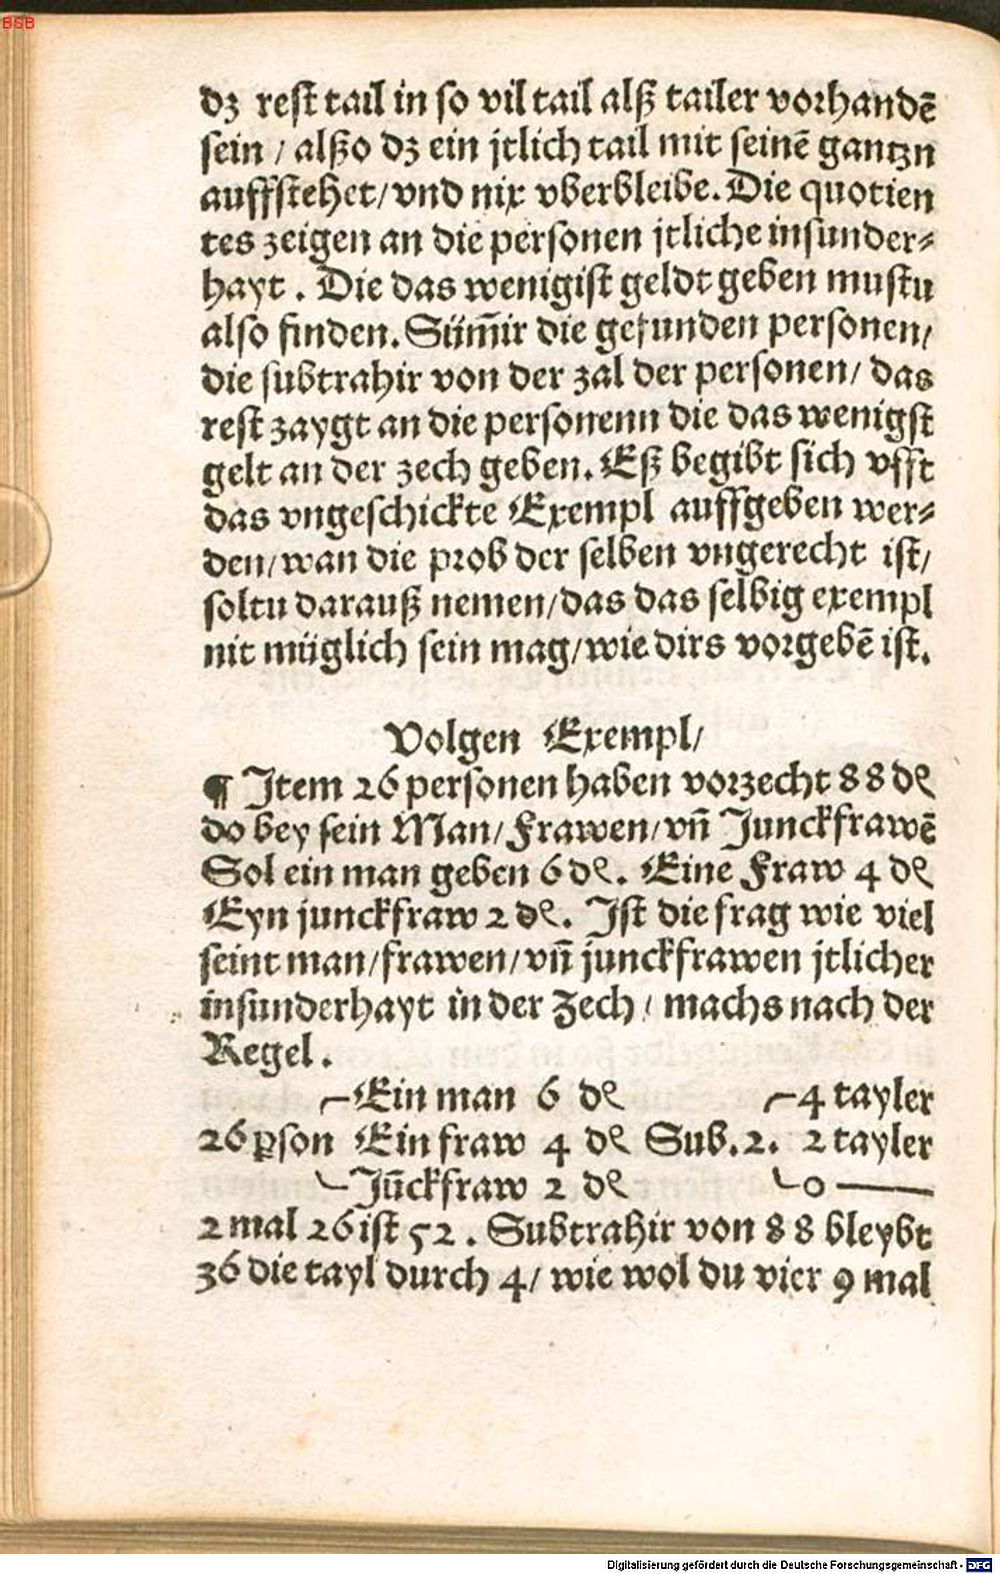 BSB
dz rest tail in so vil tail alß tailer vorhandē
sein / alßo dz ein jtlich tail mit seinē gantzn
auffstehet/vnd nix vberbleibe. Die quotien
tes zeigen an die personen jtliche insunder⸗
hayt . Die das wenigist geldt geben mustu
also finden. Süm̄ir die gefunden personen/
die subtrahir von der zal der personen/ das
rest zaygt an die personenn die das wenigst
gelt an der zech geben. Eß begibt sich vfft
das vngeschickte Exempl auffgeben wer⸗
den/wan die prob der selben vngerecht ist/
soltu darauß nemen/das das selbig exempl
nit müglich sein mag/wie dirs vorgebē ist.
Volgen Exempl/
¶ Item 26 personen haben vorzecht 88 ₰
do bey sein Man/Frawen/vn̄ Junckfrawē
Sol ein man geben 6 ₰. Eine Fraw 4 ₰
Eyn junckfraw 2 ₰. Ist die frag wie viel
seint man/frawen/vn̄ junckfrawen jtlicher
insunderhayt in der Zech / machs nach der
Regel.
Ein man 6 ₰ 4 tayler
26 ꝑson Ein fraw 4 ₰ Sub. 2. 2 tayler
Jūckfraw 2 ₰ 0
2 mal 26 ist 52 . Subtrahir von 88 bleybt
36 die tayl durch 4/ wie wol du vier 9 mal
Digitalisierung gefördert durch die Deutsche Forschungsgemeinschaft - DFG